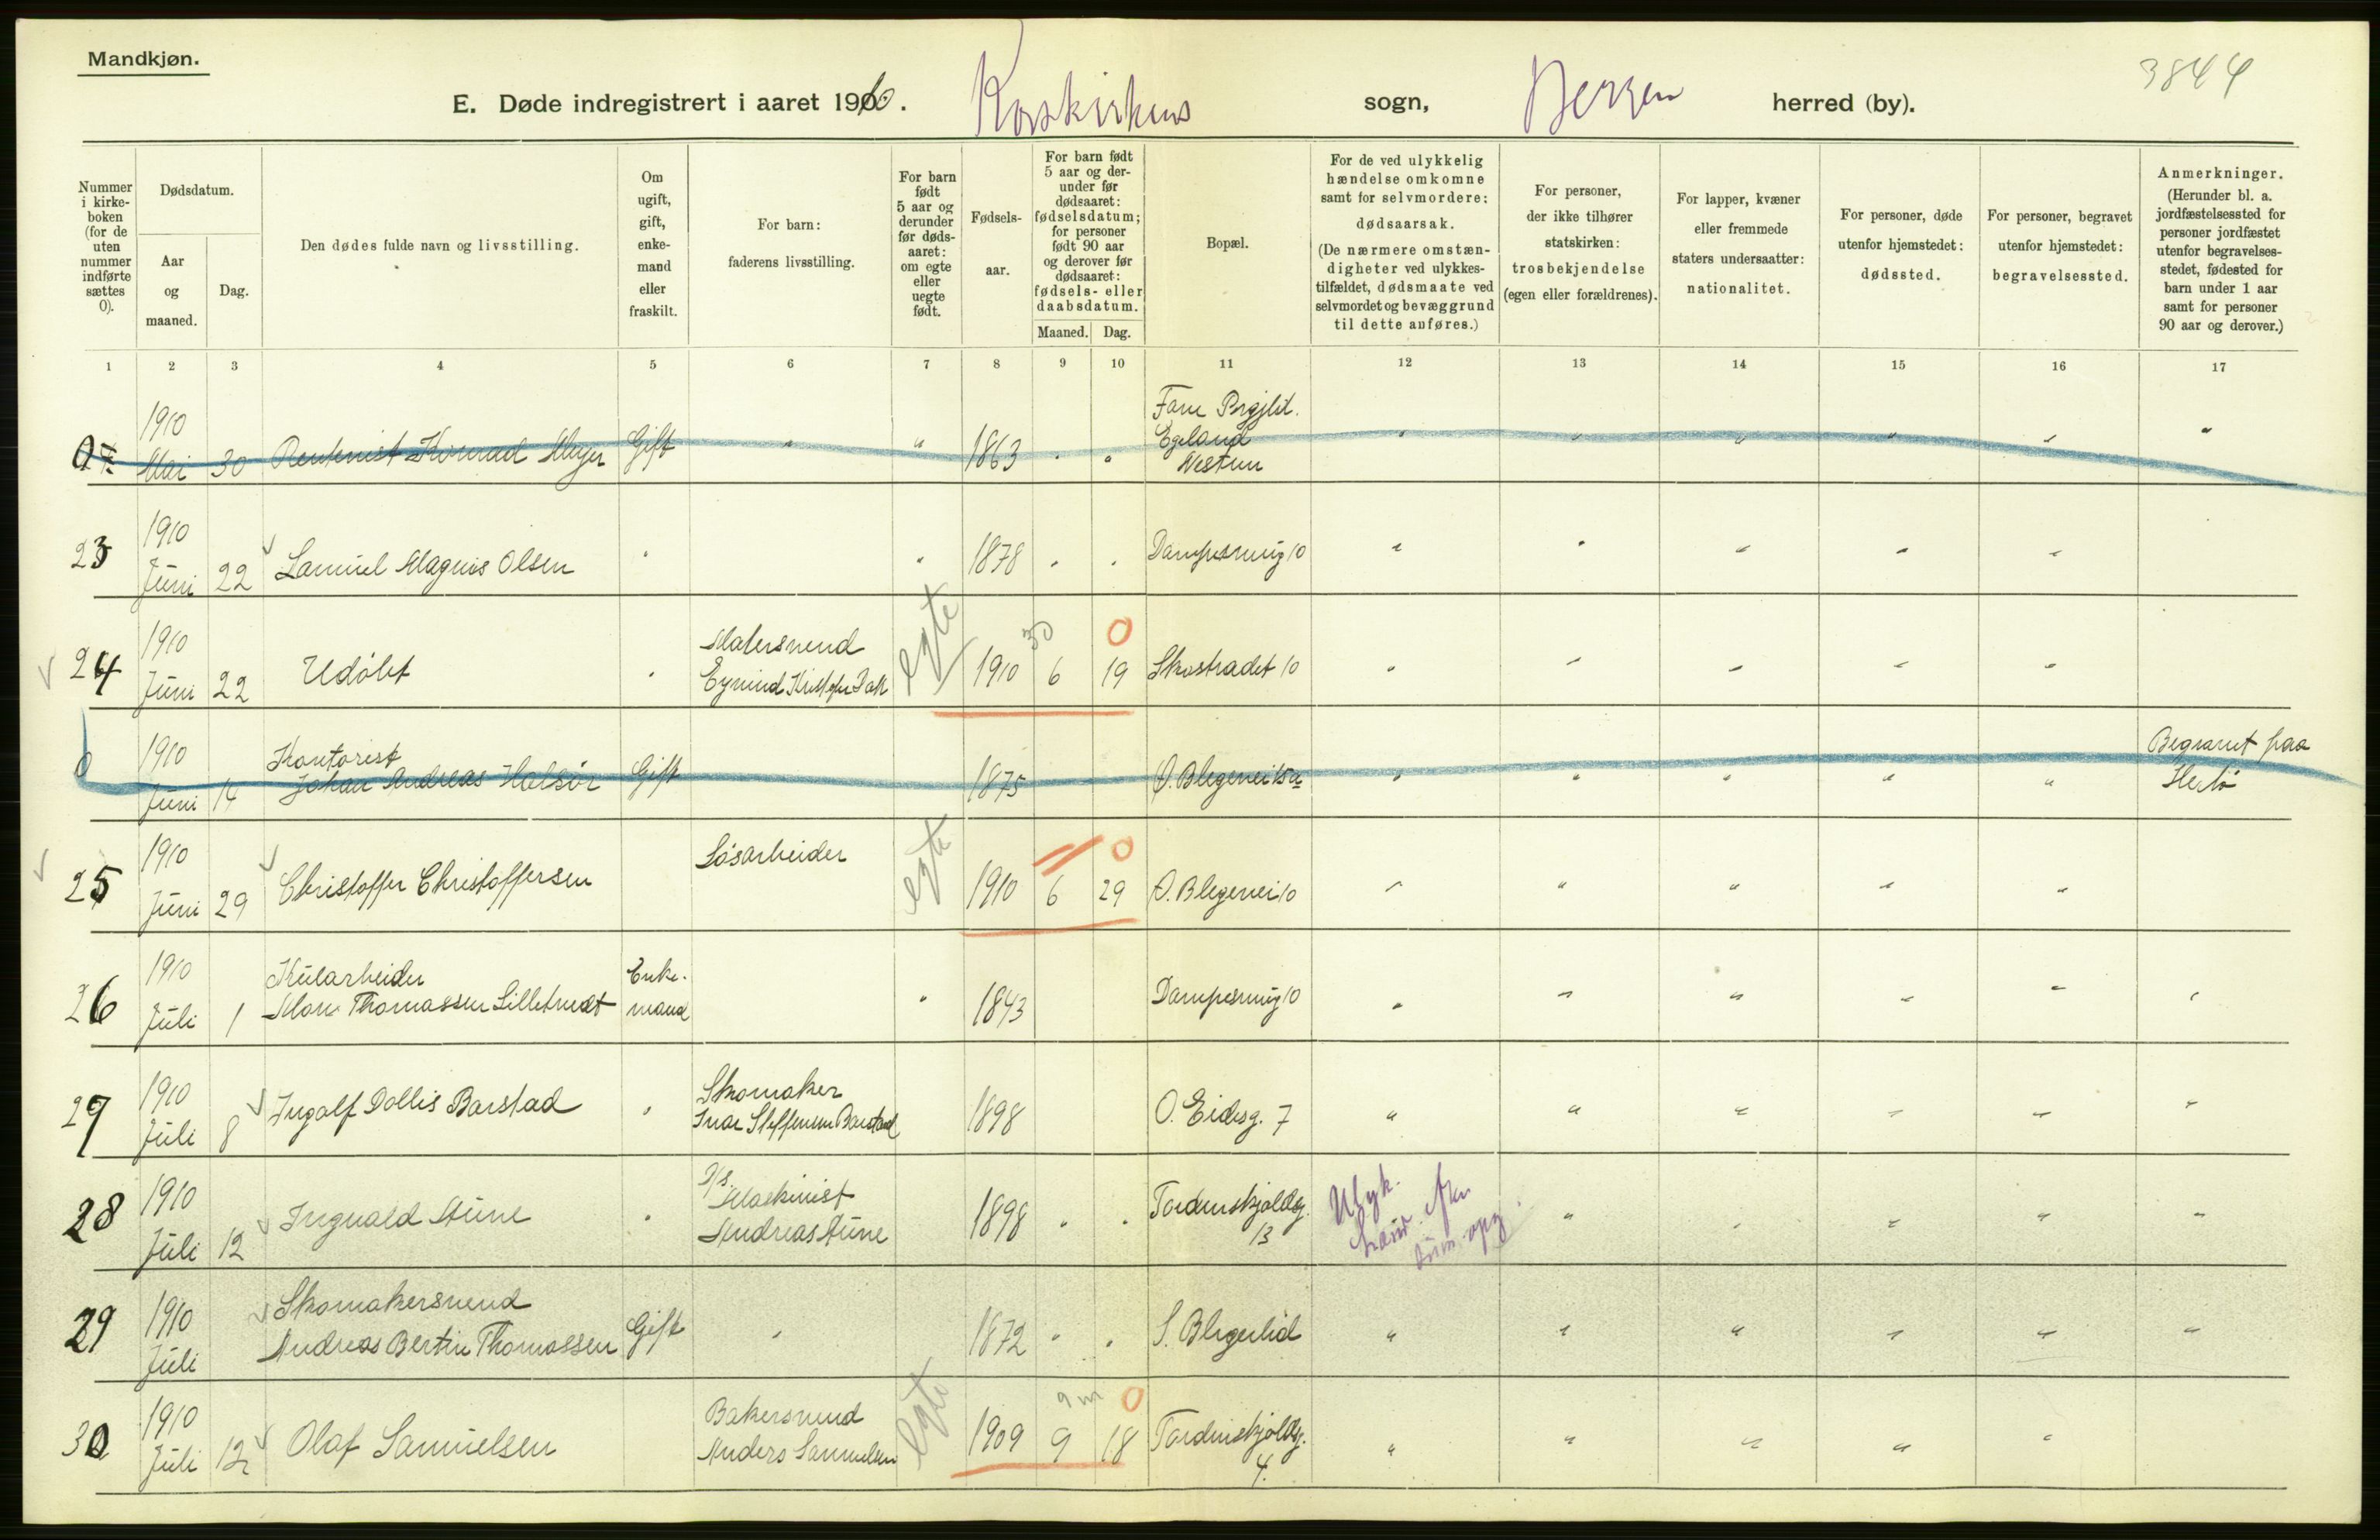 Mandkjøn.
3844
E. Døde indregistrert i aaret 1910. Korskirkens sogn, Bergen herred (by).
Nummer i kirke-boken (for de uten nummer indførte sættes 0).
Dødsdatum.
Aar og maaned.
Dag.
Den dødes fulde navn og livsstilling.
Om ugift, gift, enke-mand eller fraskilt.
For barn: faderens livsstilling.
For barn født 5 aar og derunder før døds-aaret: om egte eller uegte født.
Fødsels-aar.
For barn født 5 aar og der-under før dødsaaret: fødselsdatum; for personer født 90 aar og derover før dødsaaret: fødsels- eller daabsdatum.
Maaned. Dag.
Bopæl.
For de ved ulykkelig hændelse omkomne samt for selvmordere: dødsaarsak. (De nærmere omstæn-digheter ved ulykkes-tilfældet, dødsmaate ved selvmordet og bevæggrund til dette anføres.)
For personer, der ikke tilhører statskirken: trosbekjendelse (egen eller forældrenes).
For lapper, kvæner eller fremmede staters undersaatter: nationalitet.
For personer, døde utenfor hjemstedet: dødssted.
For personer, begravet utenfor hjemstedet: begravelsessted.
Anmerkninger. (Herunder bl. a. jordfæstelsessted for personer jordfæstet utenfor begravelses-stedet, fødested for barn under 1 aar samt for personer 90 aar og derover.)
1 2 3 4 5 6 7 8 9 10 11 12 13 14 15 16 17
1910 Mai 30 Rentenist Konrad Meyer Gift " " 1863 " " Fane Prgjld. Egeland Nestun " " " " " "
23 1910 Juni 22 Samuel Magnus Olsen " " 1878 " " Dampesmug 10 " " " " "
24 1910 Juni 22 Udøbt " Malersvend egte 1910 6 19 0 Skostradet 10 " " " " "
0 1910 Juni 14 Kontorist Johan Andreas Halsør Gift 1875 Ø. Blegevei 15a " " " " " Begravet paa
25 1910 Juni 29 Christoffer Christoffersen Løsarbeider egte 1910 6 29 0 Ø. Blegevei 10 " " " " "
26 1910 Juli 1 Kularbeider Mons Thomassen Enke-mand " 1843 Dampesmug 10 " " " " " "
27 1910 Juli 8 Ingolf Dollis Barstad " Skomaker Ivar Steffensen Barstad 1898 O. Eidesg. 7 " " " " " "
28 1910 Juli 12 Ingvald Aune " D/s. Maskinist Andreas Aune 1898 " " Tordenskjoldsg. 13 Ulyk. " " " " "
29 1910 Juli Skomakersvend Andreas Bertin Thomassen Gift " 1872 " " S. Blegerlid " " " " " "
30 1910 Juli 12 Olaf Samuelsen Bakersvend Anders Samuelsen egte 1909 9 18 9 m 0 Tordenskjoldsg. 4. " " " " "